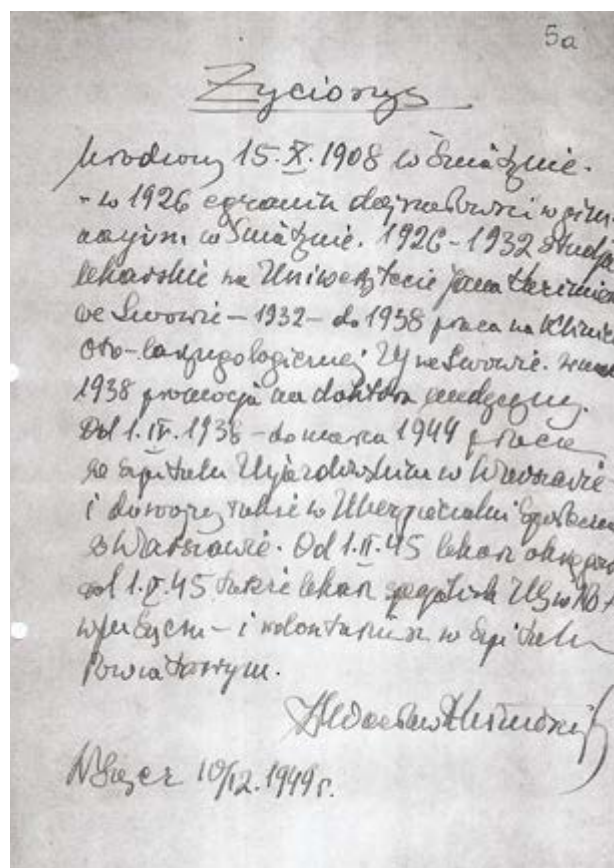 5a
Życiorys
Urodzony 15.X.1908 w Śniatynie.
- w 1926 egzamin dojrzałości w gim-
nazjum w Śniatynie. 1926-1932 studja
lekarskie na Uniwersytecie Jana Kazimie
we Lwowie - 1932 - do 1938 praca na Klinice
oto-laryngologicznej UJ we Lwowie. w
1938 promocja na doktora medycyny.
Od 1.IV.1938 - do marca 1944 praca
w Szpitalu Ujazdowskim w Warszawie
i także w Ubezpieczalni Społeczn
w Warszawie. Od 1.II.45 lekarz
od 1.V.45 także lekarz
- i wolontariusz w Szpitalu
Powiatowym.
N. Sącz 10/12.1949 r.